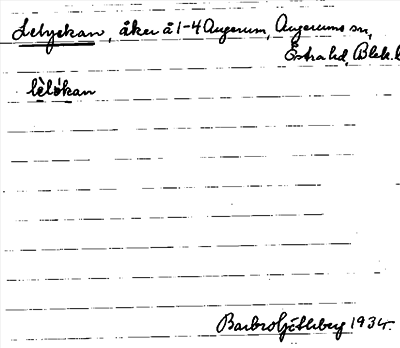 Lelyckan, åker å 1-4 Augerum, Augerums sn,
Östra hd, Blek. l
lèlókan
Barbro Götlberg 1934.